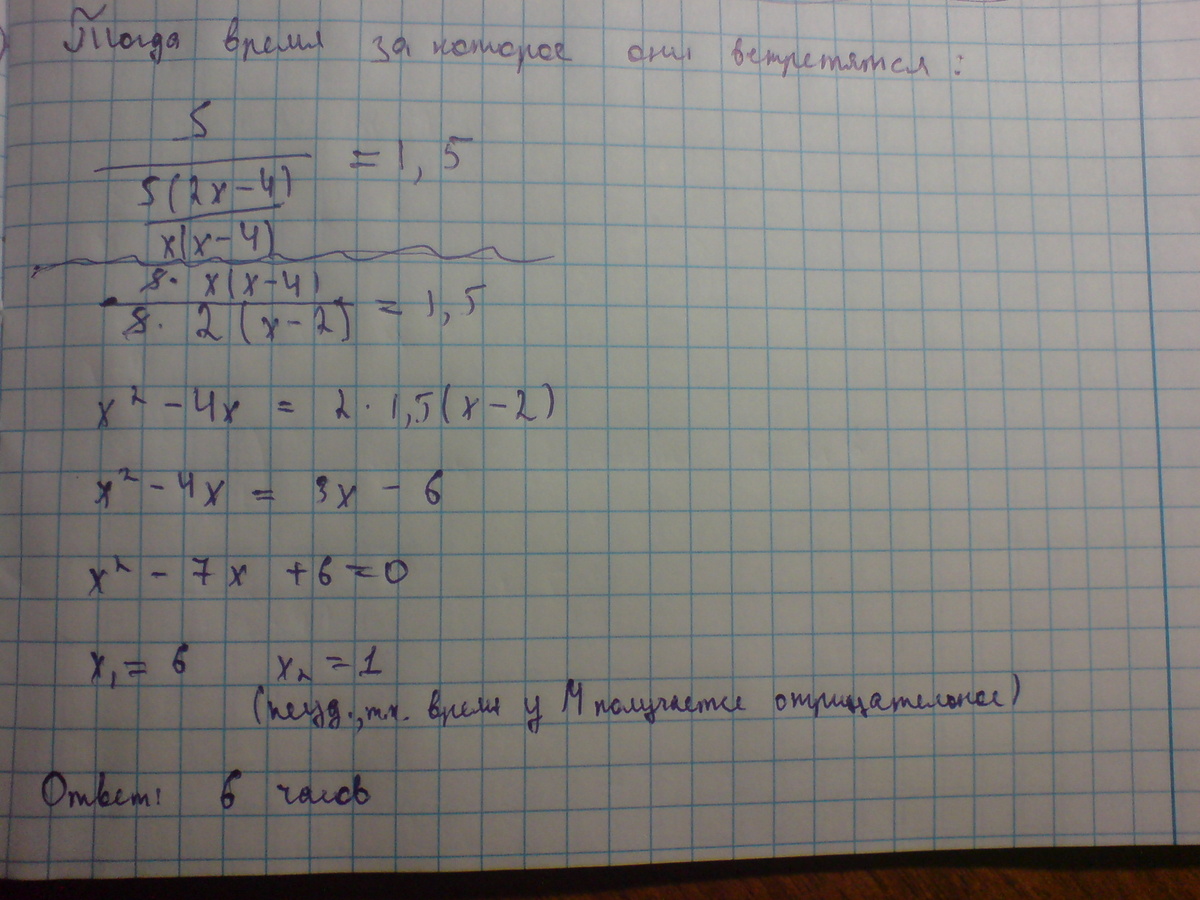 Тогда время за которое они встретятся:
S
S(2x-4) = 1,5
x(x-4)
S· x(x-4)
S· 2(x-2) = 1,5
x² - 4x = 2·1,5(x-2)
x² - 4x = 3x - 6
x² - 7x + 6 = 0
x₁ = 6 x₂ = 1
(неуд., т.к. время у М получается отрицательное)
Ответ: 6 часов